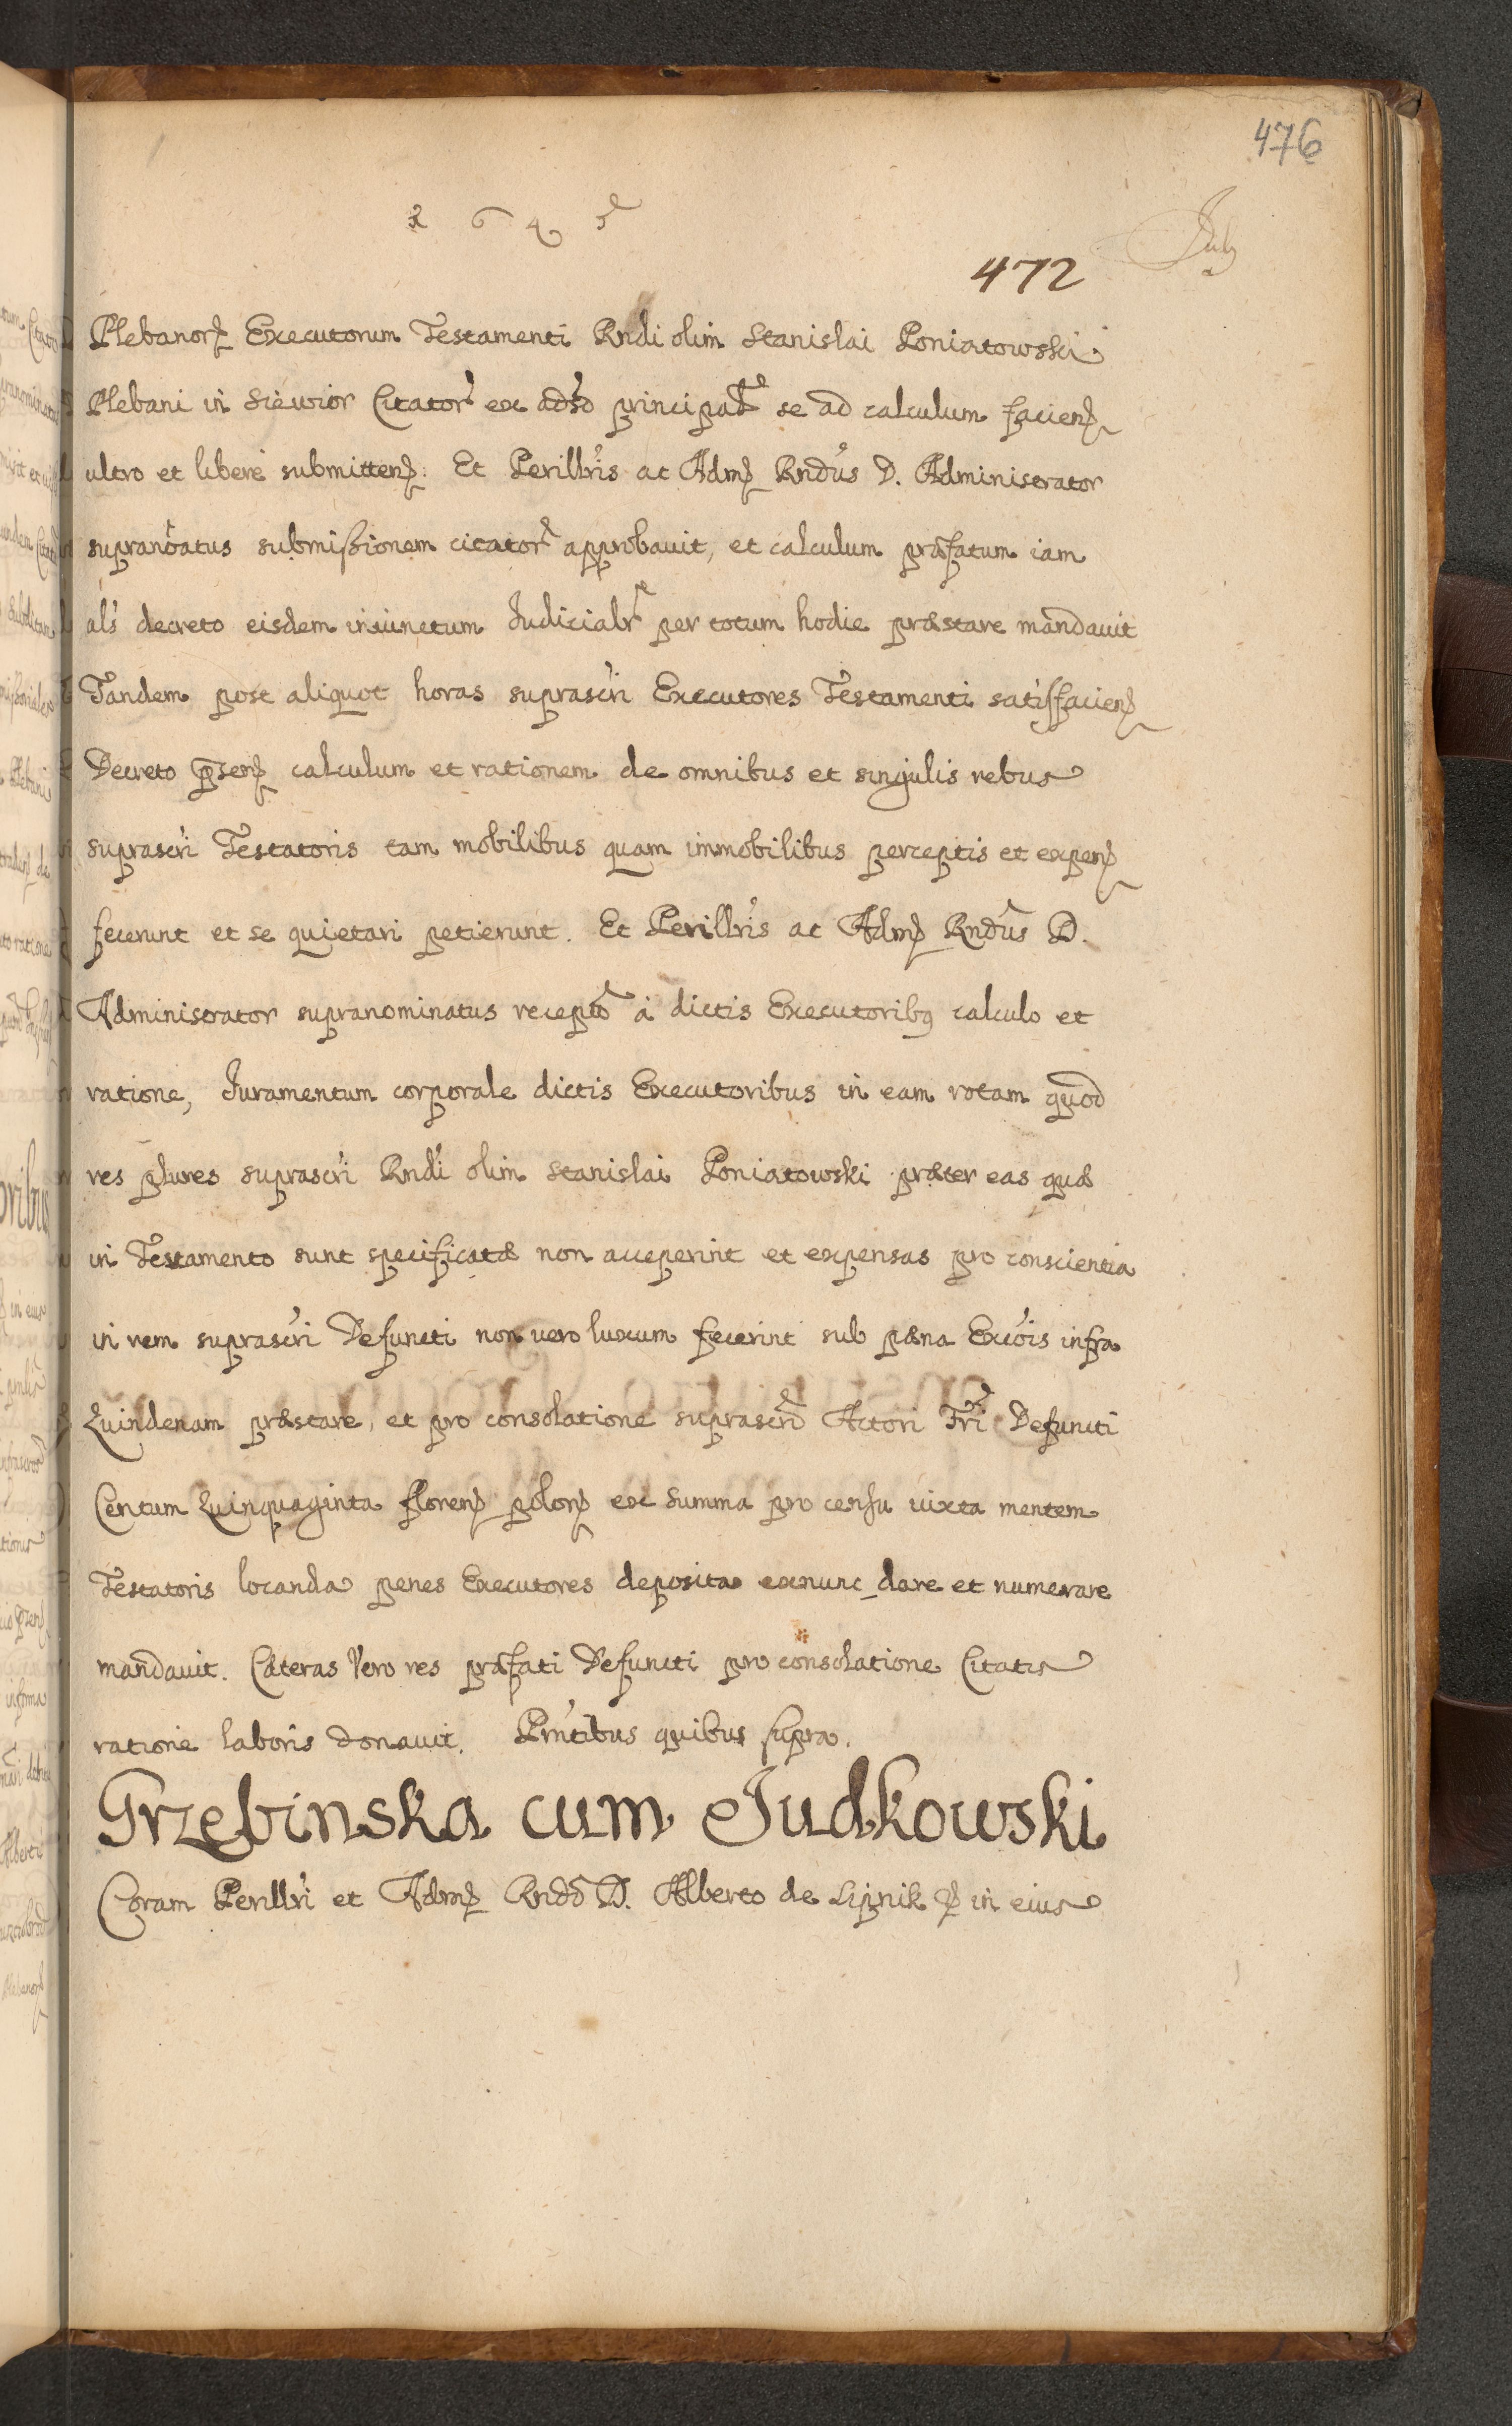 476
1 6 4 5
July
472
Plebanorꝫ Executorum Testamenti Rndi olim Stanislai Poniatowski
Plebani in Siewior Citator ex adso principal se ad calculum facienꝫ
ultro et libere submittenꝫ. Et Perillris ac Admꝫ Rndus D. Administrator
supranoatus submissionem citator approbauit, et calculum præfatum iam
als decreto eisdem iniunctum Judicialr per totum hodie præstare mandauit
Tandem post aliquot horas suprascri Executores Testamenti satisfacienꝫ
Decreto pꞅsenꝫ calculum et rationem de omnibus et singulis rebus
suprascri Testatoris tam mobilibus quam immobilibus perceptis et expenꝫ
fecerunt et se quietari petierunt. Et Perillris ac Admꝫ Rndus D.
Administrator supranominatus recepto à dictis Executoribꝯ calculo et
ratione, Juramentum corporale dictis Executoribus in eam rotam quod
res plures suprascri Rndi olim Stanislai Poniatowski præter eas quæ
in Testamento sunt specificatæ non acceperint et expensas pro conscientia
in rem suprascri Defuncti non uero luxum fecerint sub pæna Excois infra
Quindenam præstare, et pro consolatione suprascro Actori Fri Defuncti
Centum Quinquaginta florenꝫ polonꝫ ex summa pro censu iuxta mentem
Testatoris locanda penes Executores deposita exnunc dare et numerare
mandauit. Cæteras Vero res præfati Defuncti pro consolatione Citatis
ratione laboris donauit. Prntibus quibus supra.
Grzebinska cum Judkowski
Coram Perillri et Admꝫ Rndo D. Alberto de Lipnik ꝫ in eius